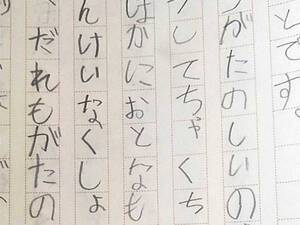 とです。
がたのしいの
してちゃくち
はかにおとなも
んけいなくしょ
、だれもがたの